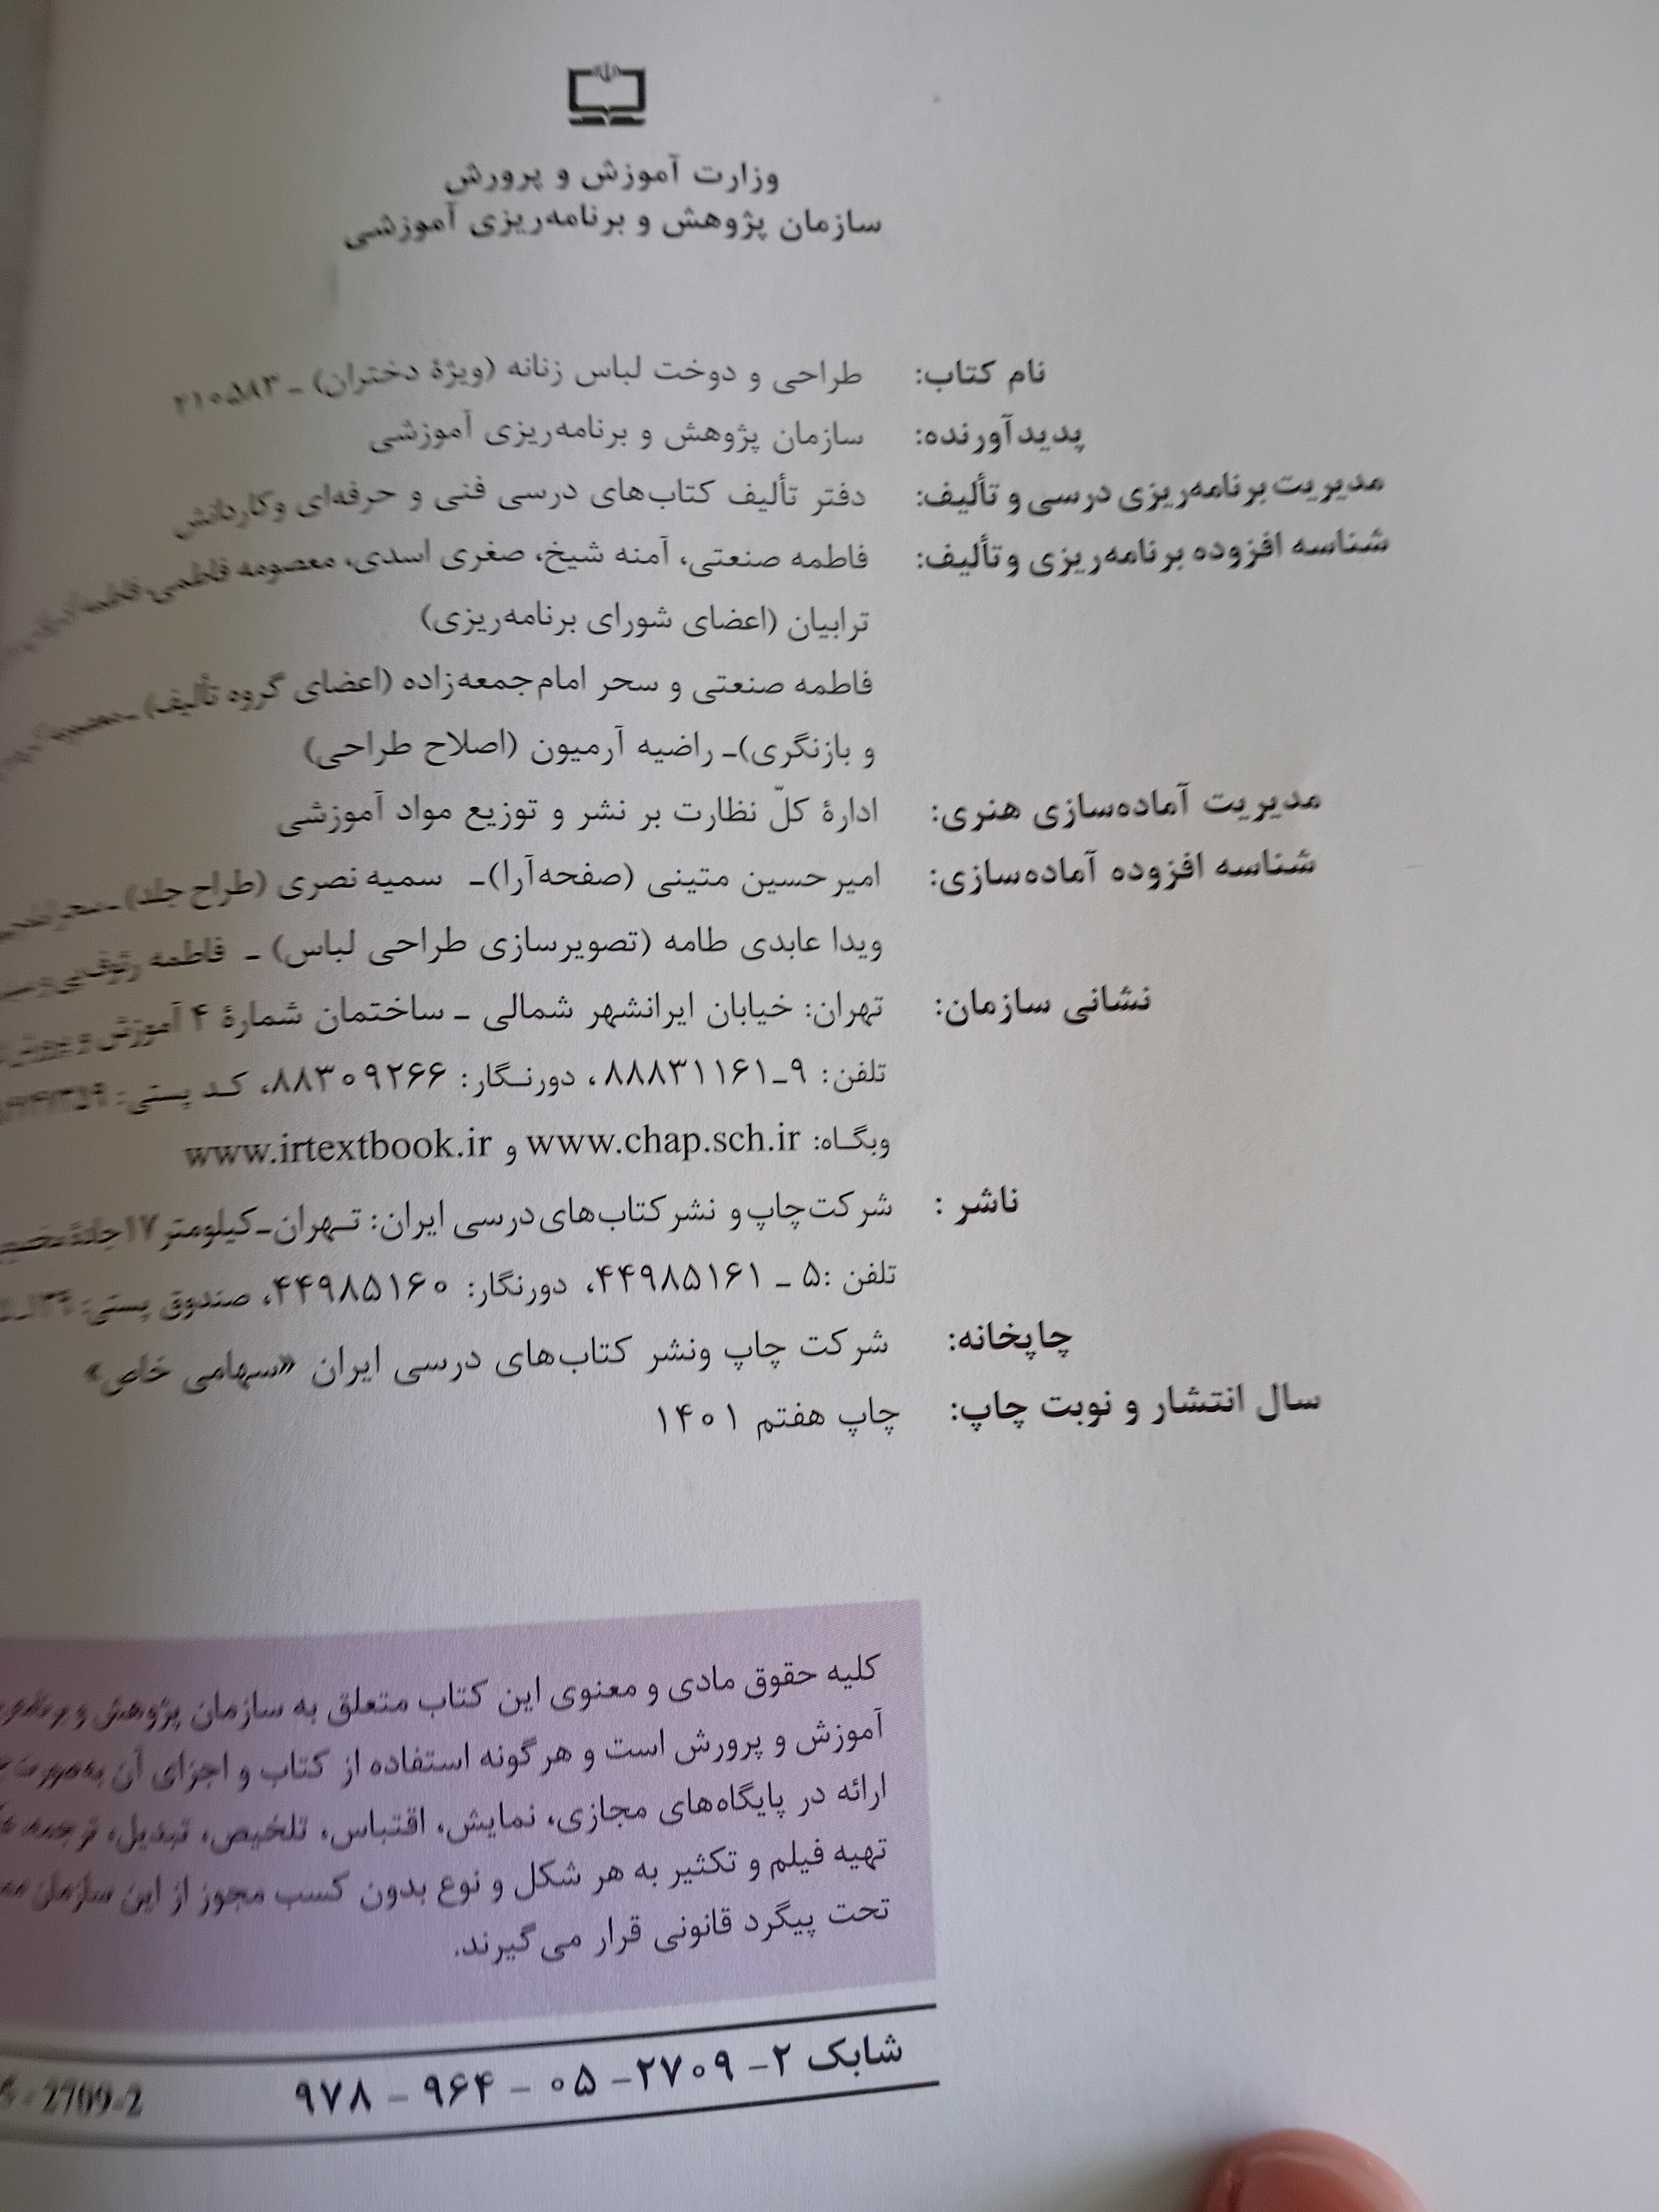 وزارت آموزش و پرورش
سازمان پژوهش و برنامه‌ریزی آموزشی
نام کتاب: طراحی و دوخت لباس زنانه (ویژهٔ دختران) ـ ۲۱۰۵۸۳
پدیدآورنده: سازمان پژوهش و برنامه‌ریزی آموزشی
مدیریت برنامه‌ریزی درسی و تألیف: دفتر تألیف کتاب‌های درسی فنی و حرفه‌ای وکاردانش
شناسه افزوده برنامه‌ریزی وتألیف: فاطمه صنعتی، آمنه شیخ، صغری اسدی، معصومه فاطمی، فاطمه
ترابیان (اعضای شورای برنامه‌ریزی)
فاطمه صنعتی و سحر امام‌جمعه‌زاده (اعضای گروه تألیف) ـ
و بازنگری)ـ راضیه آرمیون (اصلاح طراحی)
مدیریت آماده‌سازی هنری: ادارهٔ کلّ نظارت بر نشر و توزیع مواد آموزشی
شناسه افزوده آماده‌سازی: امیرحسین متینی (صفحه‌آرا)ـ سمیه نصری (طراح جلد) ـ
ویدا عابدی طامه (تصویرسازی طراحی لباس) ـ فاطمه
نشانی سازمان: تهران: خیابان ایرانشهر شمالی ـ ساختمان شمارهٔ ۴ آموزش و پرورش
تلفن: ۹ـ۸۸۸۳۱۱۶۱، دورنگار: ۸۸۳۰۹۲۶۶، کد پستی:
وبگاه: www.chap.sch.ir و www.irtextbook.ir
ناشر : شرکت‌چاپ‌و نشرکتاب‌های‌درسی ایران: تهران‌ـ‌کیلومتر ۱۷ جادهٔ
تلفن :۵ ـ ۴۴۹۸۵۱۶۱، دورنگار: ۴۴۹۸۵۱۶۰، صندوق پستی:
چاپخانه: شرکت چاپ ونشر کتاب‌های درسی ایران «سهامی خاص»
سال انتشار و نوبت چاپ: چاپ هفتم ۱۴۰۱
کلیه حقوق مادی و معنوی این کتاب متعلق به سازمان پژوهش و
آموزش و پرورش است و هرگونه استفاده از کتاب و اجزای آن به‌صورت
ارائه در پایگاه‌های مجازی، نمایش، اقتباس، تلخیص، تبدیل، ترجمه،
تهیه فیلم و تکثیر به هر شکل و نوع بدون کسب مجوز از این سازمان
تحت پیگرد قانونی قرار می‌گیرند.
شابک ۲- ۲۷۰۹- ۰۵ - ۹۶۴ - ۹۷۸ - 2709-2